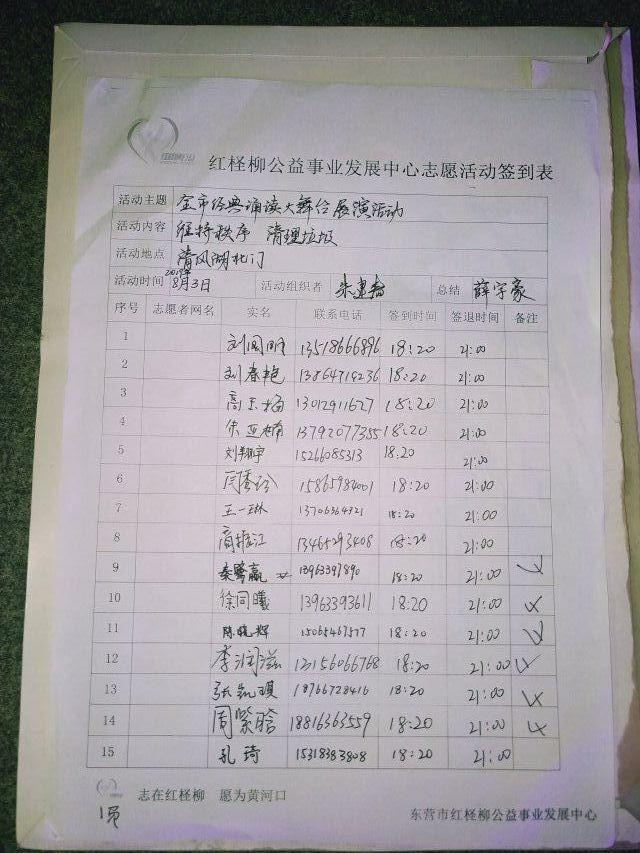 红柽柳公益事业发展中心志愿活动签到表
活动主题 全市经典诵读大舞台展演活动
活动内容 维持秩序 清理垃圾
活动地点 清风湖北门
活动时间 8月3日 活动组织者 总结 薛字豪
序号 志愿者网名 实名 联系电话 签到时间 签退时间 备注
1 刘国明 13518666896 18:20 21:00
2 刘春艳 13864714236 18:20 21:00
3 13012911627 18:20 21:00
4 13792077355 18:20 21:00
5 刘翔宇 15266085313 18:20 21:00
6 闫秀玲 15865984001 18:20 21:00
7 王一琳 13706364921 18:20 21:00
8 商振江 13465293408 18:20 21:00
9 秦鹭赢 13963397890 18:20 21:00
10 徐同曦 13963393611 18:20 21:00
11 陈晓辉 15065467577 18:20 21:00
12 李润滋 13156066768 18:20 21:00
13 张凯琪 18766728416 18:20 21:00
14 周紫晗 18816363559 18:20 21:00
15 孔琦 15318383808 18:20 21:00
志在红柽柳 愿为黄河口
1页 东营市红柽柳公益事业发展中心